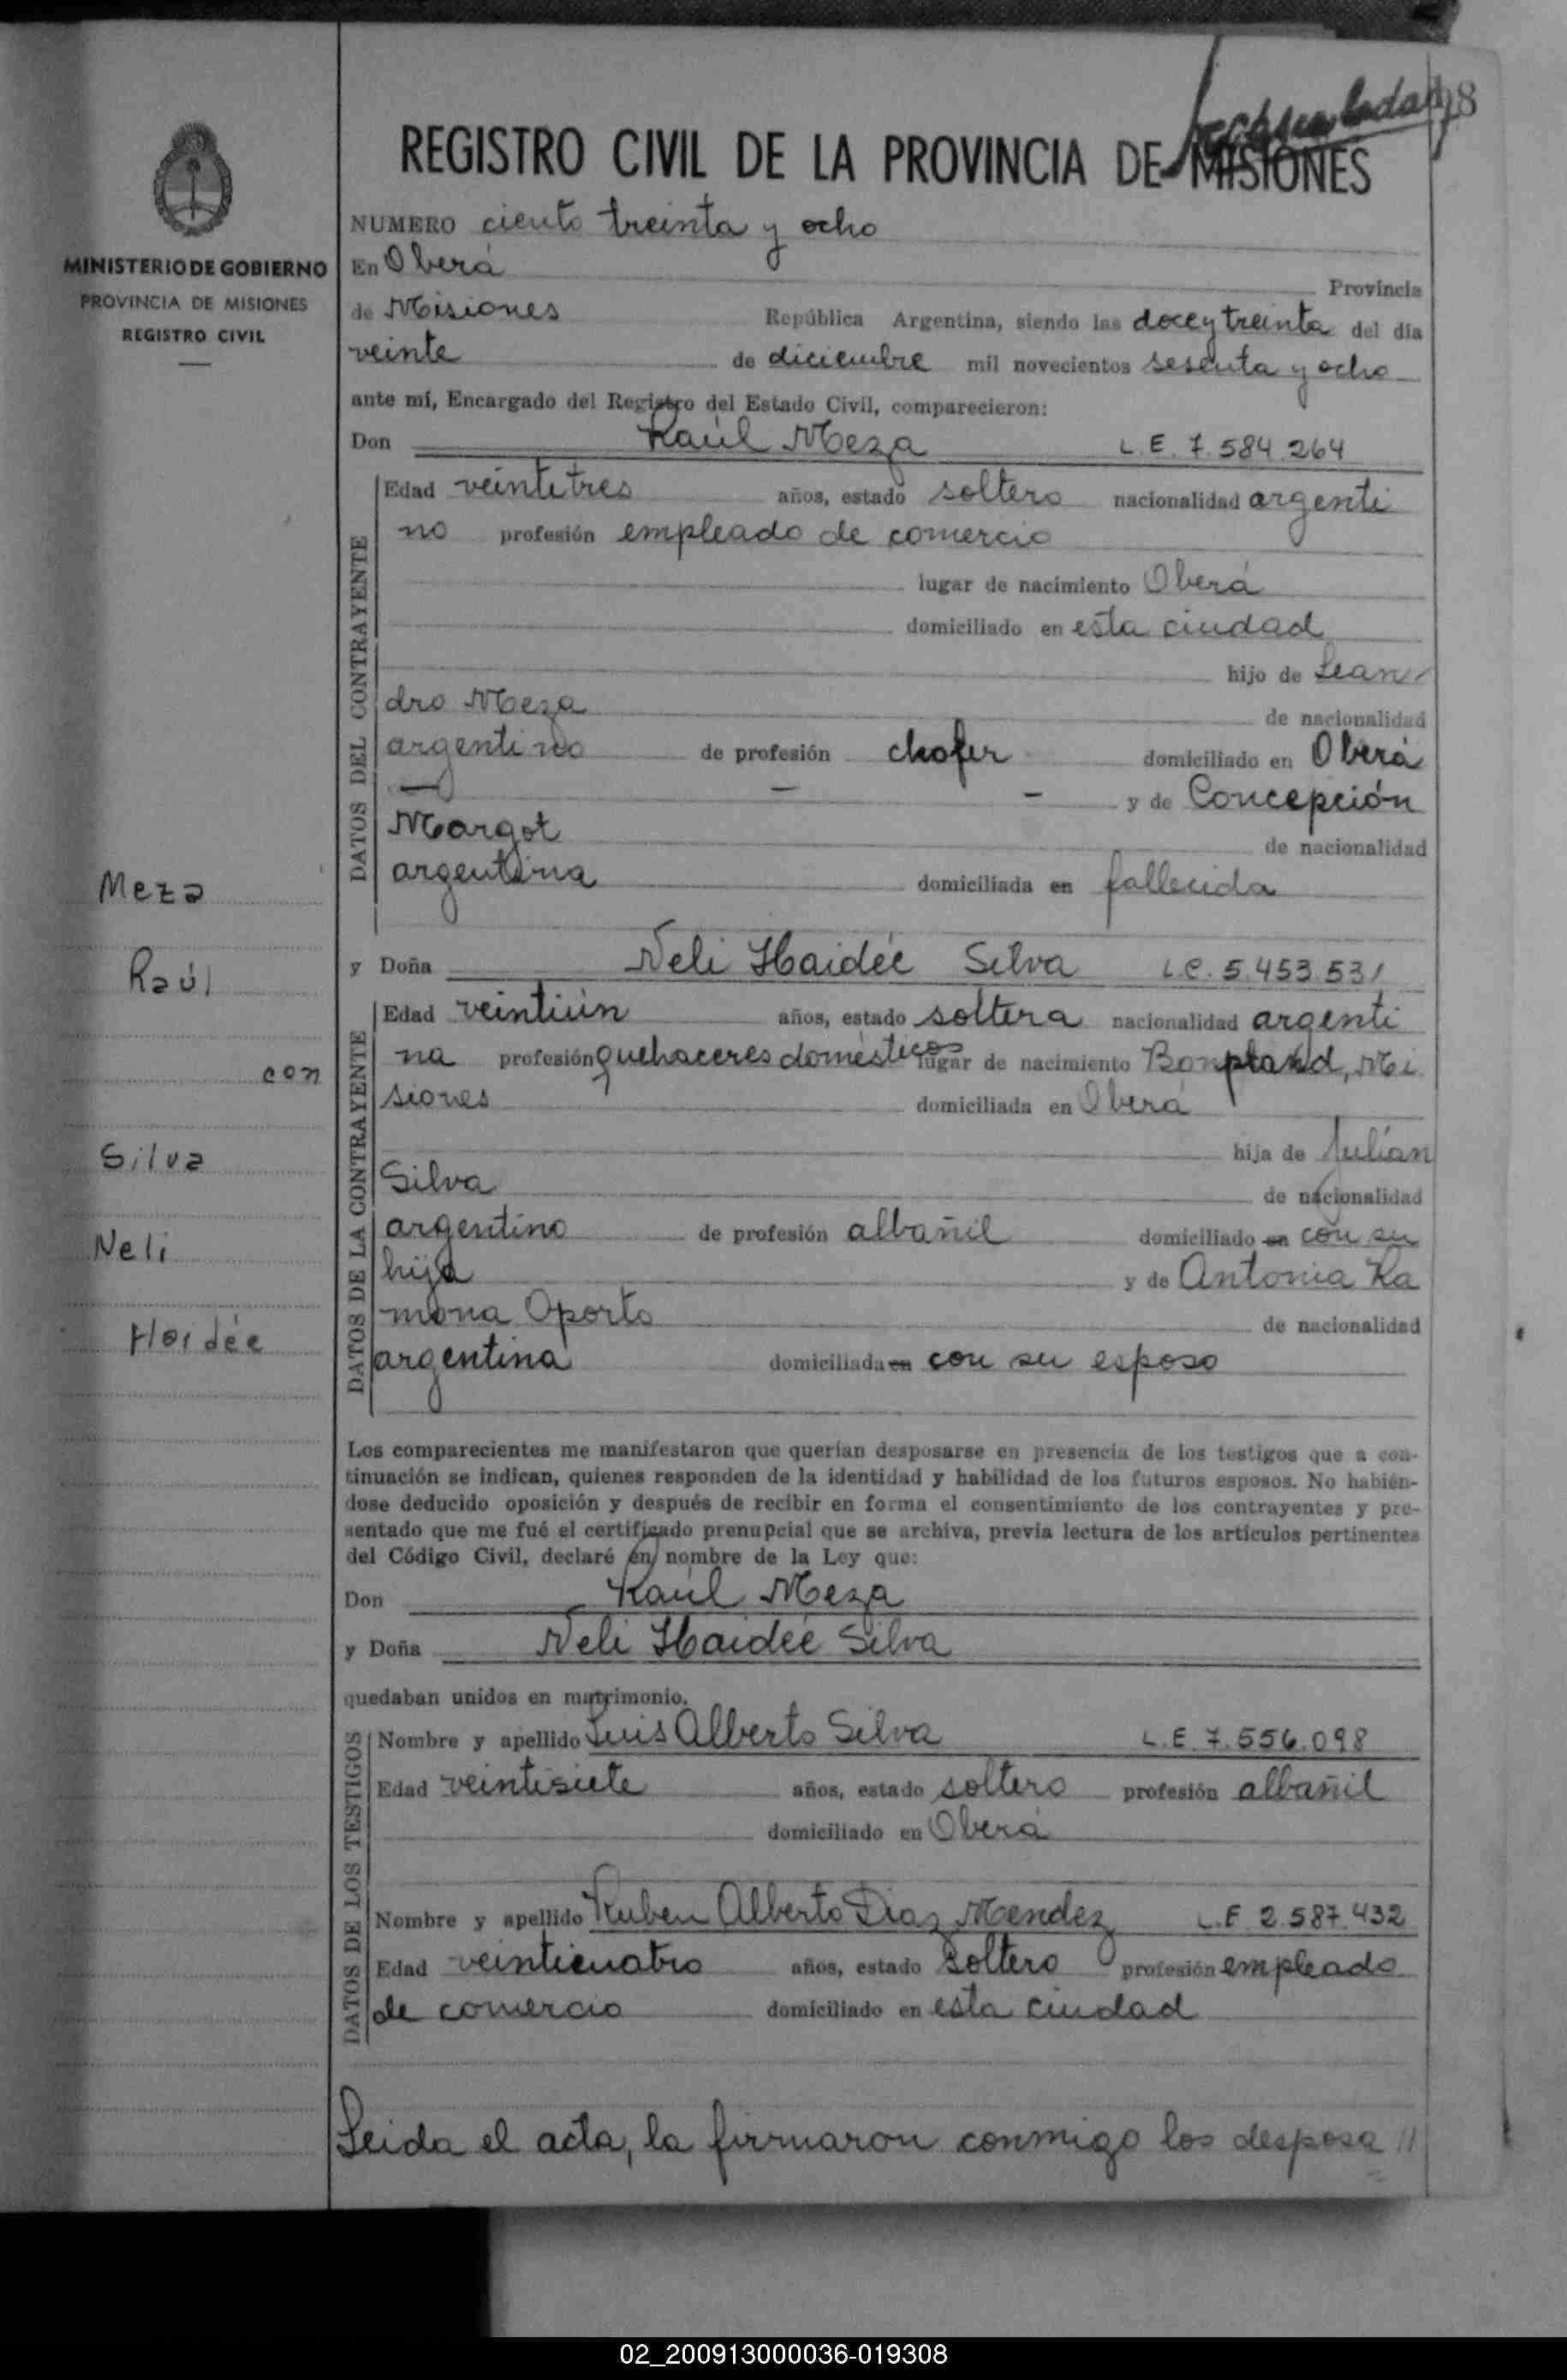 138
REGISTRO CIVIL DE LA PROVINCIA DE MISIONES
MINISTERIO DE GOBIERNO
PROVINCIA DE MISIONES
REGISTRO CIVIL
NUMERO ciento treinta y ocho
En Oberá
Provincia
de Misiones República Argentina, siendo las doce y treinta del día
veinte de diciembre mil novecientos sesenta y ocho
ante mí, Encargado del Registro del Estado Civil, comparecieron:
Don Raúl Meza L.E. 7.584.264
DATOS DEL CONTRAYENTE
Edad veintitres años, estado soltero nacionalidad argenti
no profesión empleado de comercio
lugar de nacimiento Oberá
domiciliado en esta ciudad
hijo de Lean
dro Meza de nacionalidad
argentino de profesión chofer domiciliado en Oberá
— — — y de Concepción
Margot de nacionalidad
argentina domiciliada en fallecida
Meza
Raúl
con
Silva
Neli
Haidée
y Doña Neli Haidée Silva L.C. 5.453.531
DATOS DE LA CONTRAYENTE
Edad veintiún años, estado soltera nacionalidad argenti
na profesión quehaceres domésticos lugar de nacimiento Bonpland, Mi
siones domiciliada en Oberá
hija de Julián
Silva de nacionalidad
argentino de profesión albañil domiciliado en con su
hija y de Antonia Ra
mona Oporto de nacionalidad
argentina domiciliada en con su esposo
Los comparecientes me manifestaron que querían desposarse en presencia de los testigos que a con-
tinuación se indican, quienes responden de la identidad y habilidad de los futuros esposos. No habién-
dose deducido oposición y después de recibir en forma el consentimiento de los contrayentes y pre-
sentado que me fué el certificado prenupcial que se archiva, previa lectura de los artículos pertinentes
del Código Civil, declaré en nombre de la Ley que:
Don Raúl Meza
y Doña Neli Haidée Silva
quedaban unidos en matrimonio.
DATOS DE LOS TESTIGOS
Nombre y apellido Luis Alberto Silva L.E. 7.556.098
Edad veintisiete años, estado soltero profesión albañil
domiciliado en Oberá
Nombre y apellido Ruben Alberto Diaz Mendez L.E 2.587.432
Edad veinticuatro años, estado soltero profesión empleado
de comercio domiciliado en esta ciudad
Leida el acta, la firmaron conmigo los desposa //
02_200913000036-019308